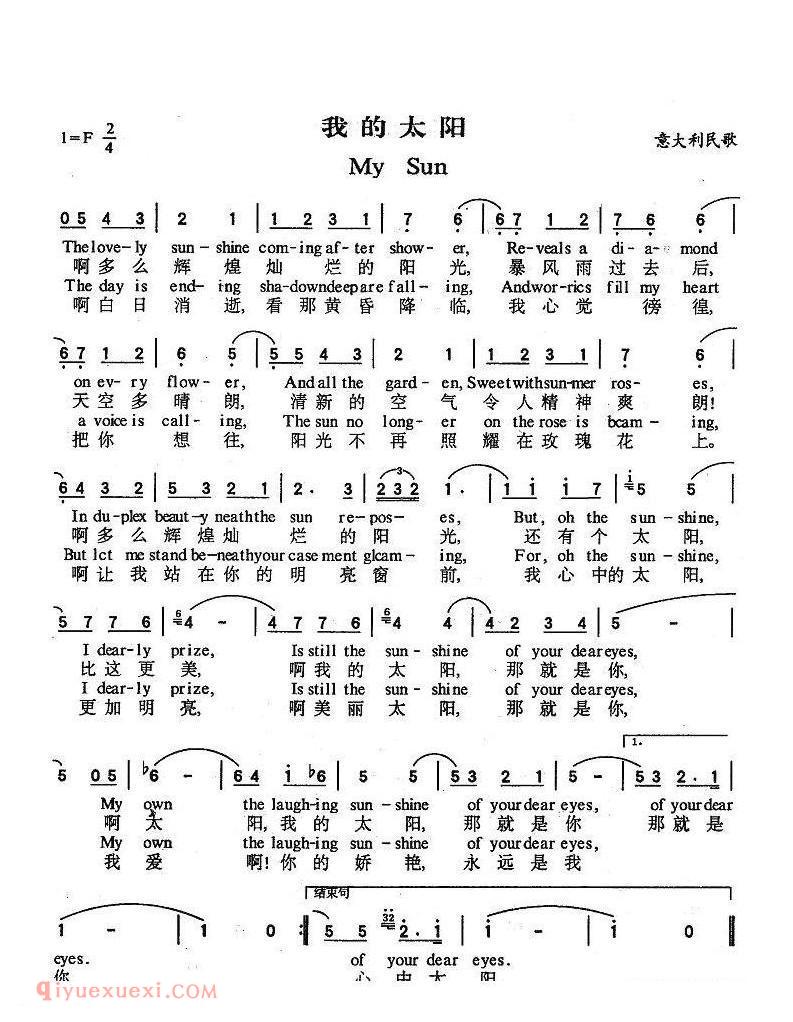 我的太阳
1=F 2/4 意大利民歌
My Sun
0 5 4 3 | 2 1 | 1 2 3 1 | 7 6 | 6 7 1 2 | 7 6 6
The love-ly sun-shine com-ing af-ter show-er, Re-veals a di-a-mond
啊多么辉煌灿烂的阳光,暴风雨过去后,
The day is end-ing sha-down deep are fall-ing, And wor-rics fill my heart
啊白日消逝,看那黄昏降临,我心觉徬徨,
6 7 1 2 | 6 5 | 5 5 4 3 | 2 1 | 1 2 3 1 | 7 6
on ev-ry flow-er, And all the gard-en, Sweet with sun-mer ros-es,
天空多晴朗,清新的空气令人精神爽朗!
a voice is call-ing, The sun no long-er on the rose is bcam-ing,
把你想往,阳光不再照耀在玫瑰花上。
6 4 3 2 | 5 3 2 1 | 2. 3 | 3 2 3 2 1. | 1 1 1 7 | 1 5 5
In du-plex beaut-y neath the sun re-pos-es, But, oh the sun-shine,
啊多么辉煌灿烂的阳光,还有个太阳,
But lct me stand be-neath your case ment glcam-ing, For, oh the sun-shine,
啊让我站在你的明亮窗前,我心中的太阳,
5 7 7 6 | 6 4 - | 4 7 7 6 | 6 4 4 | 4 2 3 4 | 5 -
I dear-ly prize, Is still the sun-shine of your dear eyes,
比这更美,啊我的太阳,那就是你,
I dear-ly prize, Is still the sun-shine of your dear eyes,
更加明亮,啊美丽太阳,那就是你,
1.
5 0 5 | ♭6 - | 6 4 i ♭6 | 5 5 | 5 3 2 1 | 5 - | 5 3 2. 1
My own the laugh-ing sun-shine of your dear eyes, of your dear
啊太阳,我的太阳,那就是你那就是
My own the laugh-ing sun-shine of your dear eyes,
我爱啊!你的娇艳,永远是我
结束句
1 - | 1 0 :‖ 5 5 3 2 2. 1 | 1 - | 1 0
eyes. of your dear eyes.
你 心中太阳
qiyuexuexi.com